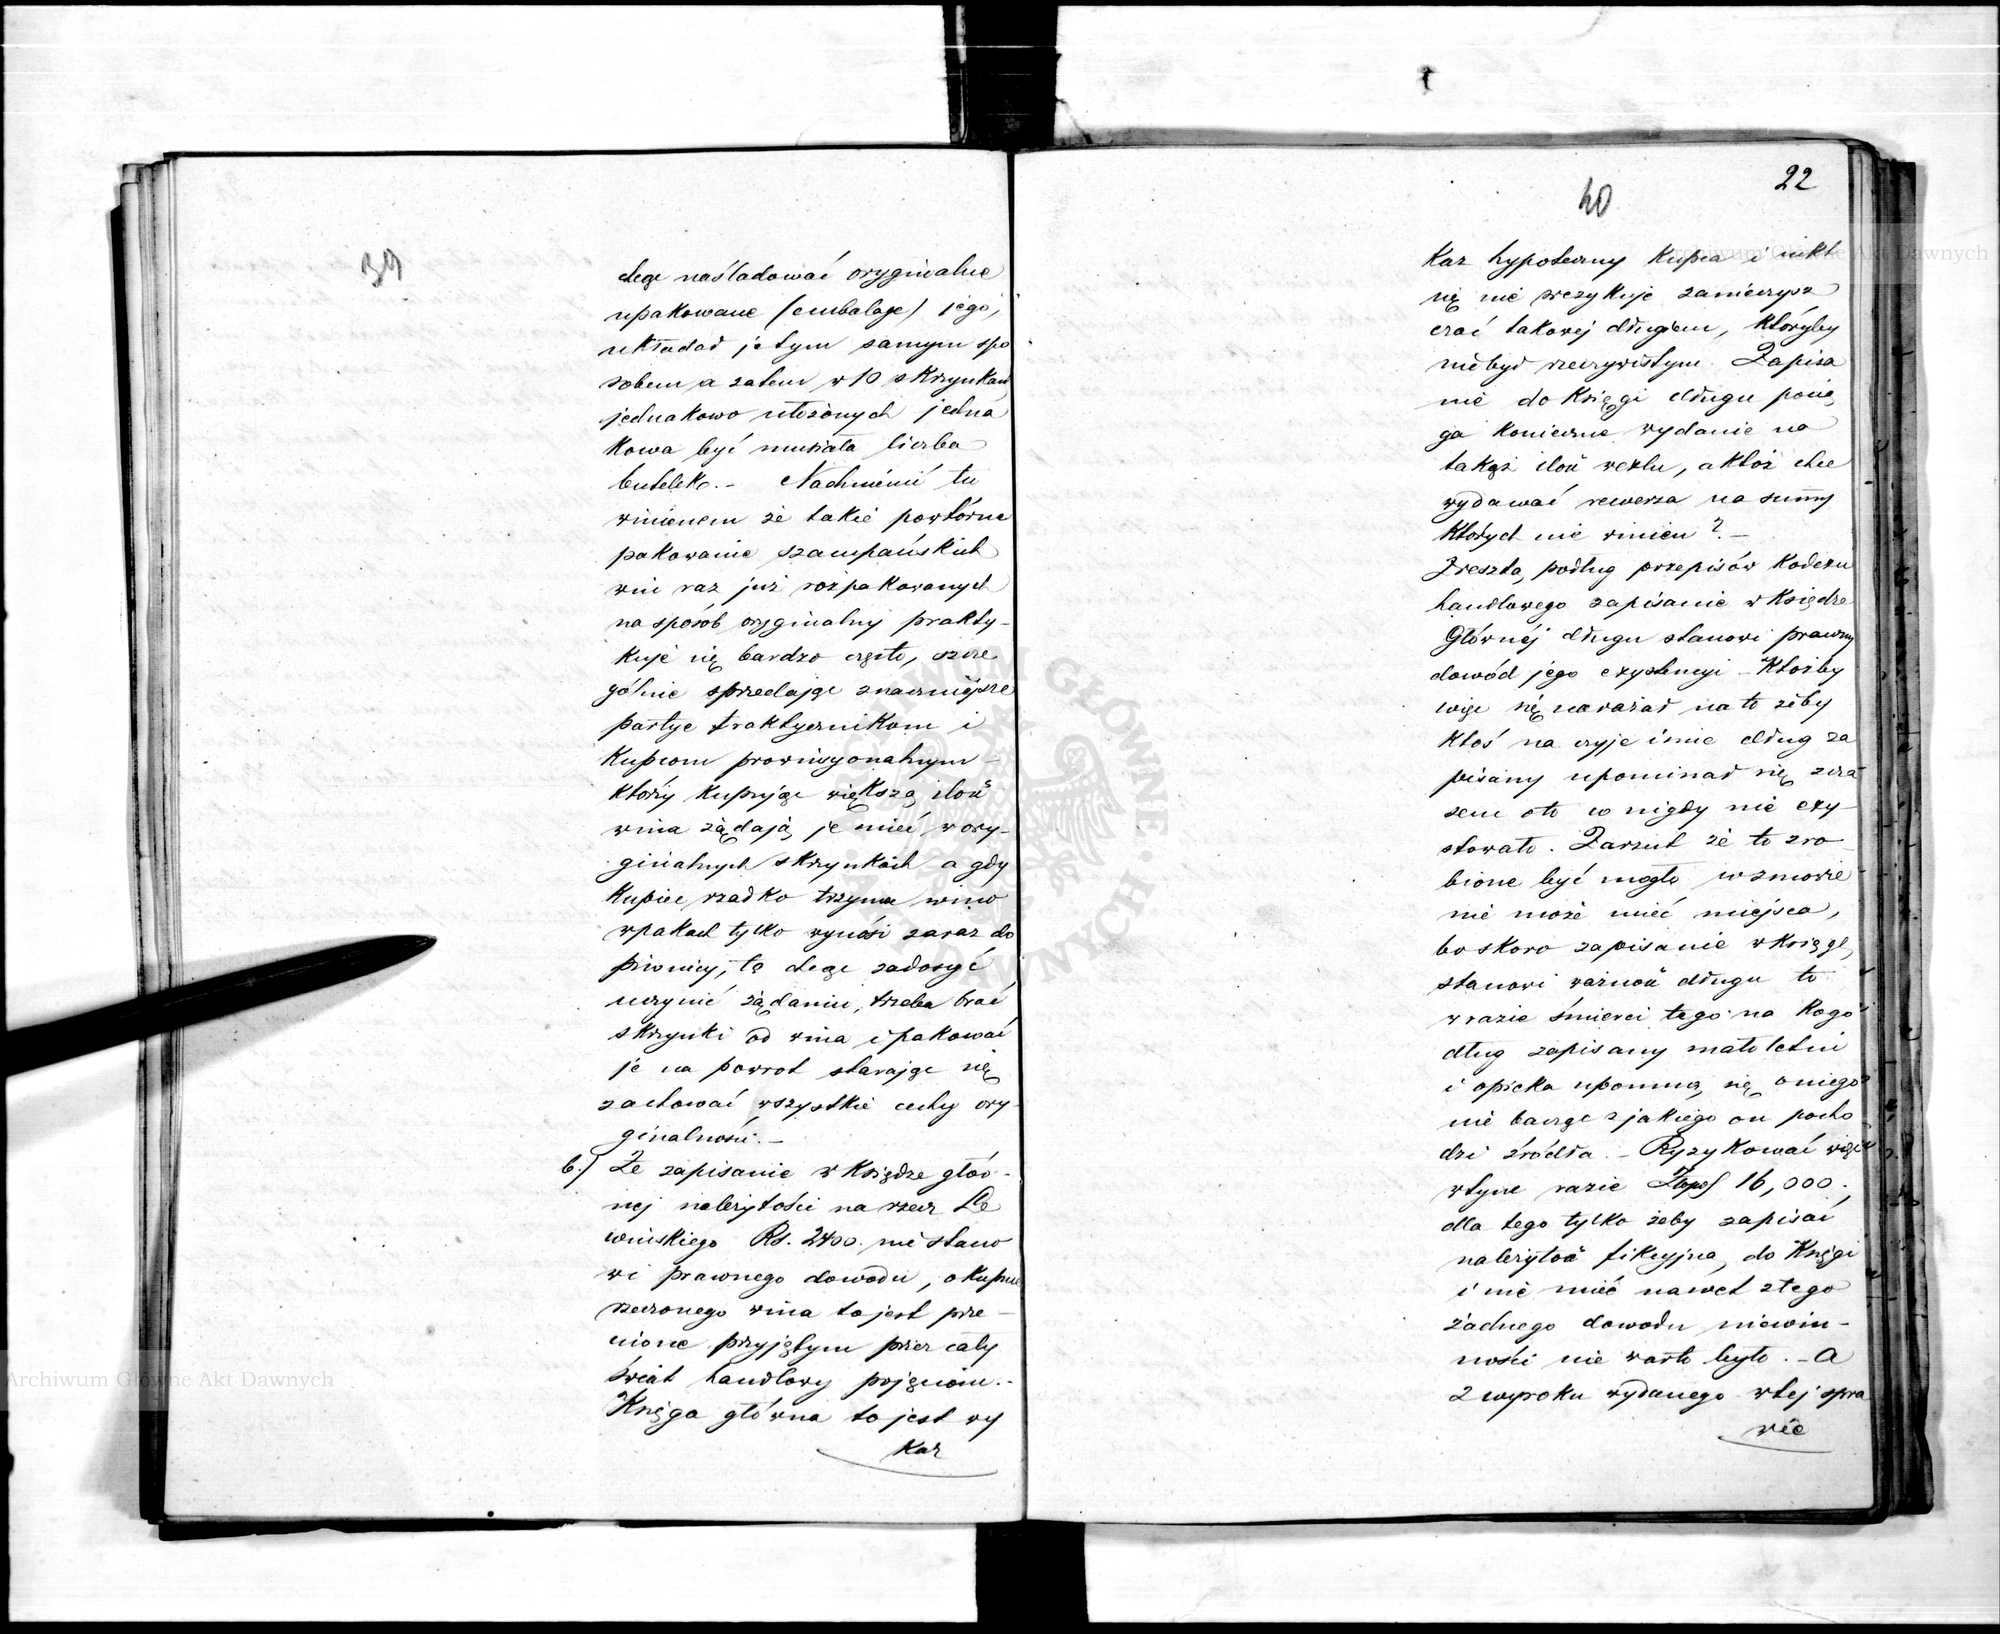 39
chcąc naśladować oryginalne
upakowane (embalage) jego,
układał je tym samym spo
sobem a zatem w 10 skrzynkach
jednakowo ułożonych jedna
kowa być musiała liczba
butelek. – Nadmienić tu
winienem że takie powtórne
pakowanie szampańskich
win raz już rozpakowanych
na sposób oryginalny prakty-
kuje się bardzo często, szcze
gólnie sprzedając znaczniejsze
partye traktyernikom i
Kupcom prowincyonalnym –
którzy kupując większą ilość
wina żądają je mieć w ory-
ginalnych skrzynkach a gdy
Kupiec rzadko trzyma wino
w pakach tylko wynosi zaraz do
piwnicy, to chcąc zadosyć
uczynić żądaniu, trzeba brać
skrzynki od wina i pakować
je na powrót starając się
zachować wszystkie cechy ory-
ginalności. –
6.) Że zapisanie w Księdze głów-
nej należytości na rzecz Le
wińskiego Rs. 2400. nie stano
wi prawnego dowodu, o kupnie
rzeczonego wina to jest prze-
ciwne przyjętym przez cały
świat handlowy pojęciom. –
Księga główna to jest wy
kaz
22
40
Kaz hypoteczny Kupca i nikt
się nie ryzykuje zanieczysz
czać takowej długiem, któryby
nie był rzeczywistym. Zapisa
nie do Księgi długu pocią
ga konieczne wydanie na
takąż ilość wexlu, a któż chce
wydawać rewersa na summy
których nie winien? –
Zresztą, podług przepisów Kodexu
handlowego zapisanie w Księdze
Głównéj długu stanowi prawny
dowód jego exystencyi – Któżby
więc się narażał na to żeby
ktoś na czyje imie dług za
pisany upominał się cza
sem o to co nigdy nie exy-
stowało. Zarzut że to zro
bione być mogło w zmowie
nie może mieć miejsca,
bo skoro zapisanie w księgę,
stanowi ważność długu to
w razie śmierci tego na kogo
dług zapisany małoletni
i opieka upomną się o niego
nie bacząc z jakiego on pocho
dzi źródła. – Ryzykować więc
w tym razie Złp. 16,000.,
dla tego tylko żeby zapisać
należytość fikcyjną do Księgi
i nie mieć nawet z tego
żadnego dowodu niewin-
ności nie warto było. – A
z wyroku wydanego w tej spra
wie
Archiwum Główne Akt Dawnych
Archiwum Główne Akt Dawnych